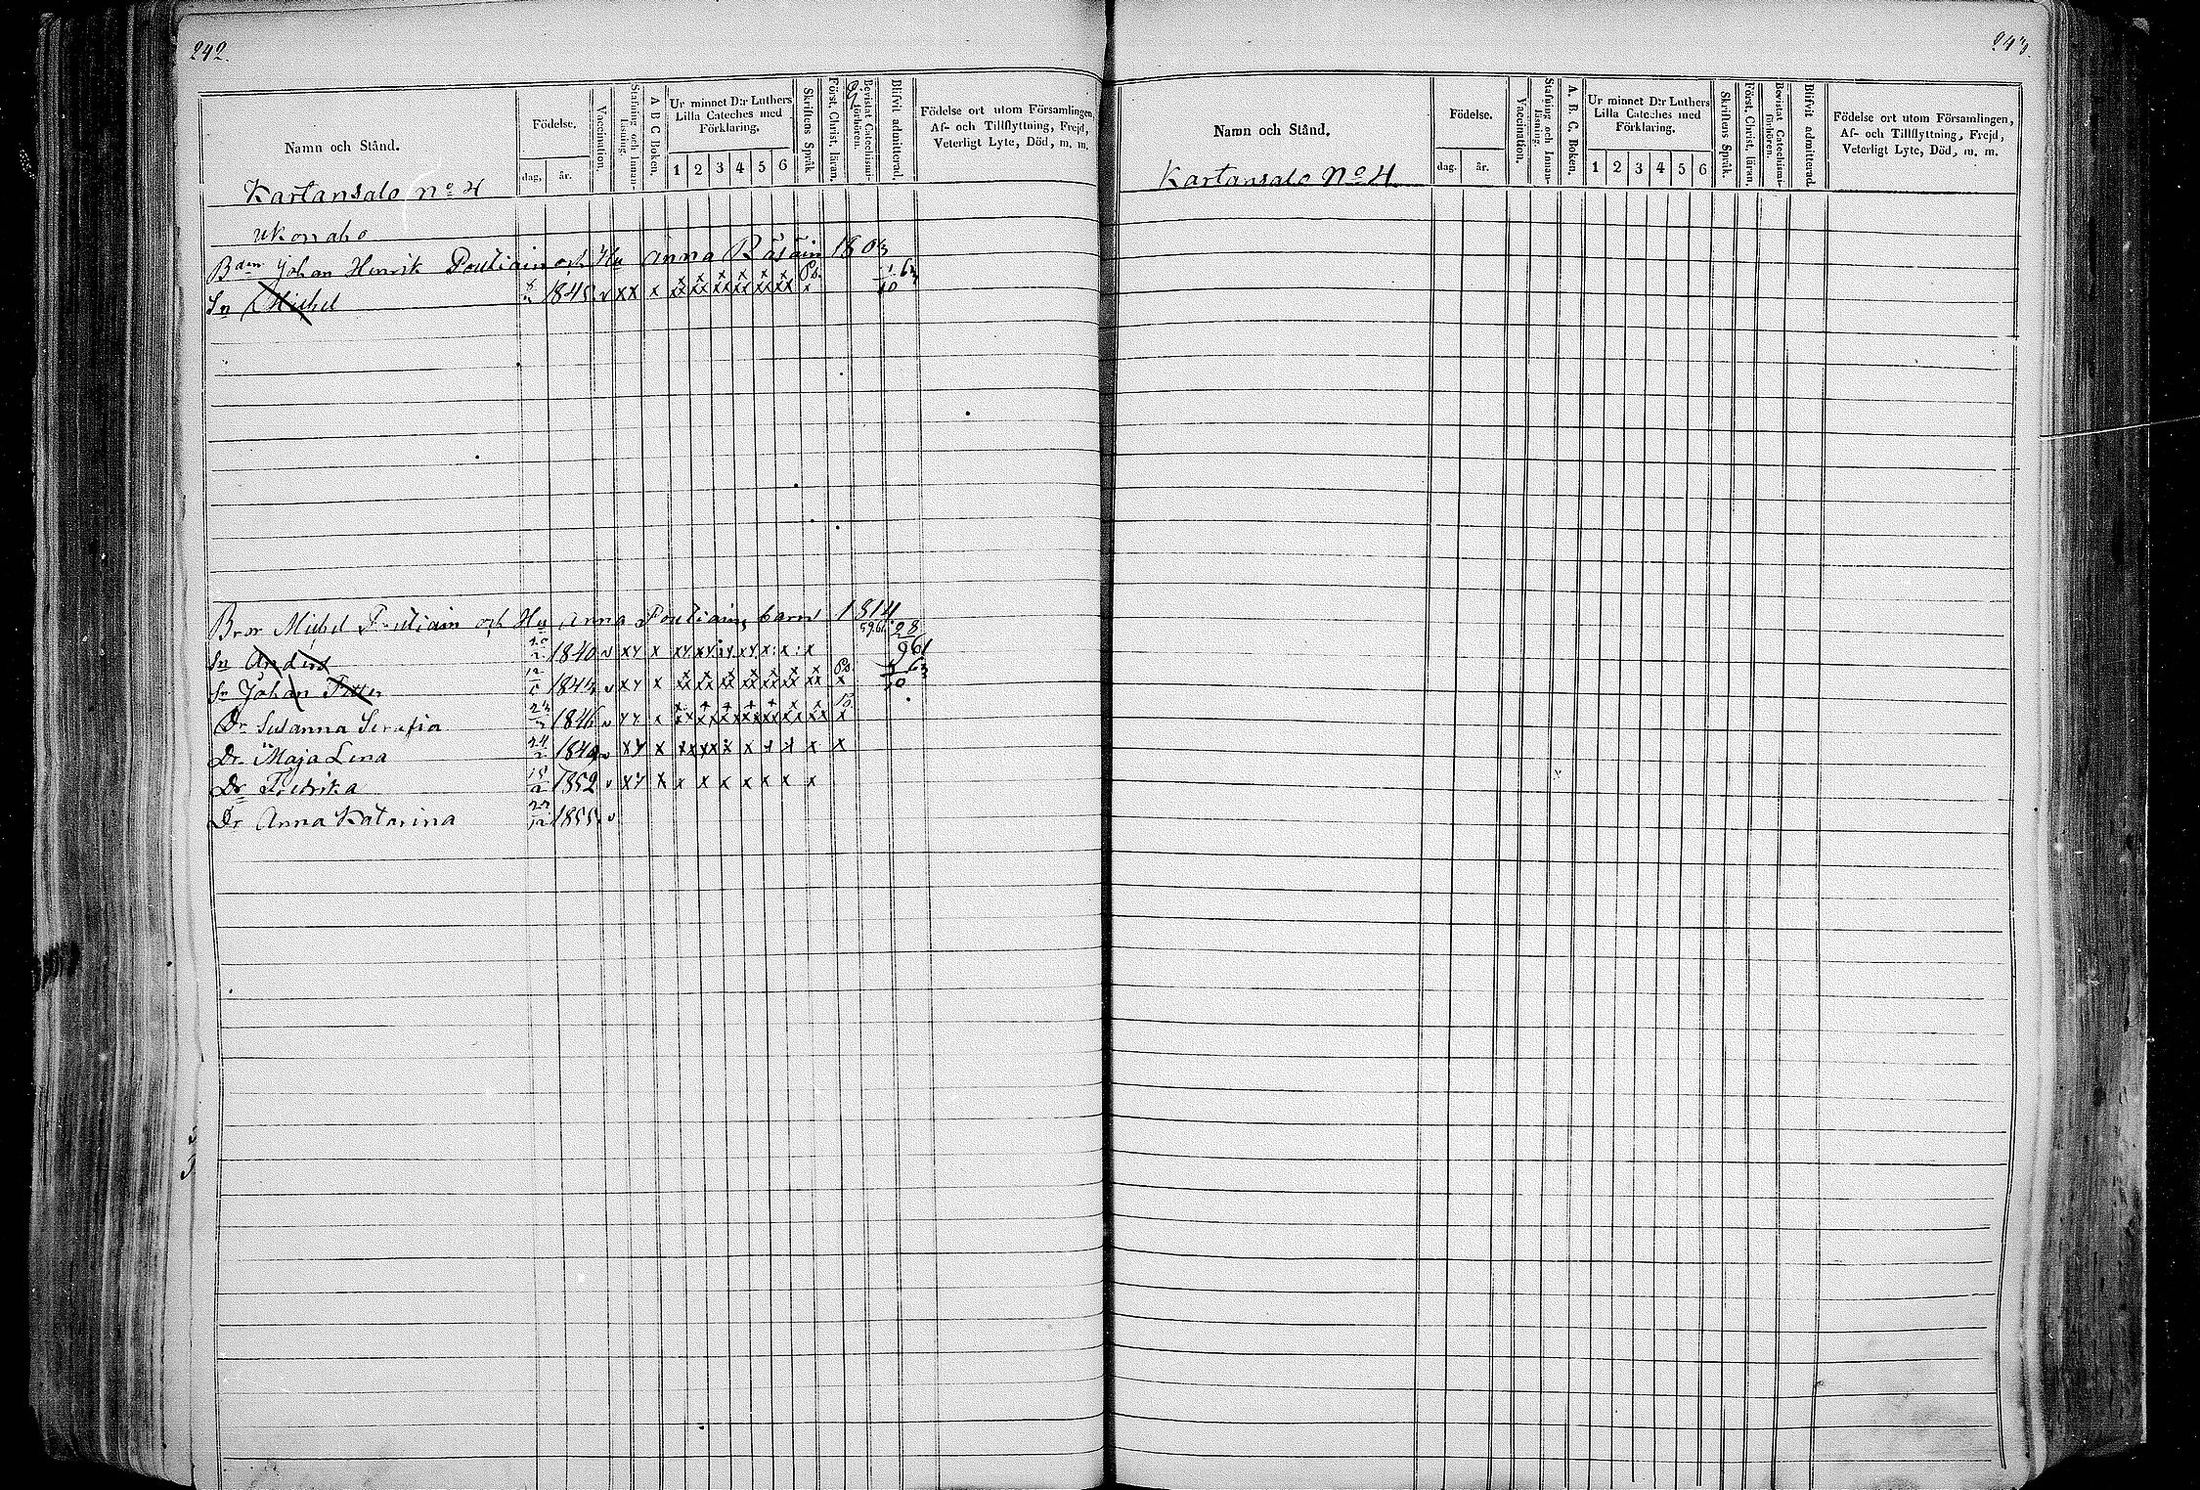 242.
Namn och Stånd.
Födelse.
dag,
år.
Vaccination.
Stafning och Innan-läsning.
A B C Boken.
Ur minnet D:r Luthers Lilla Cateches med Förklaring.
1 2 3 4 5 6
Skriftens Språk
Först. Christ. läran,
Bevistat Catechismi-förhören.
Blifvit admitterad
Födelse ort utom Församlingen, Af- och Tillflyttning, Frejd, Veterligt Lyte, Död, m. m.
Kartansalo No 4
Ukonaho
Bden Johan Henrik Poutiain och Hu Anna Räsäin 1803
Sn Michel 1845 v xx x
Bror Michel Poutiain och Hu Anna Poutiain, barn 1814
Sn Anders 1840 v
Sn Johan Petter 1844 v
Dr Susanna Serafia 1846 v
Dr Maja Lena 24/2 1849 v
Dr Fredrika 1852 v
Dr Anna Katarina 1855 v
243
Namn och Stånd.
Födelse.
dag.
år.
Vaccination.
Stafning och Innan-läsning.
A. B. C. Boken,
Ur minnet D:r Luthers Lilla Cateches med Förklaring.
1 2 3 4 5 6
Skriftens Språk.
Först. Christ. läran,
Bevistat Catechismi-förhören.
Blifvit admitterad.
Födelse ort utom Församlingen, Af- och Tillflyttning, Frejd, Veterligt Lyte, Död, m. m.
Kartansalo No 4.